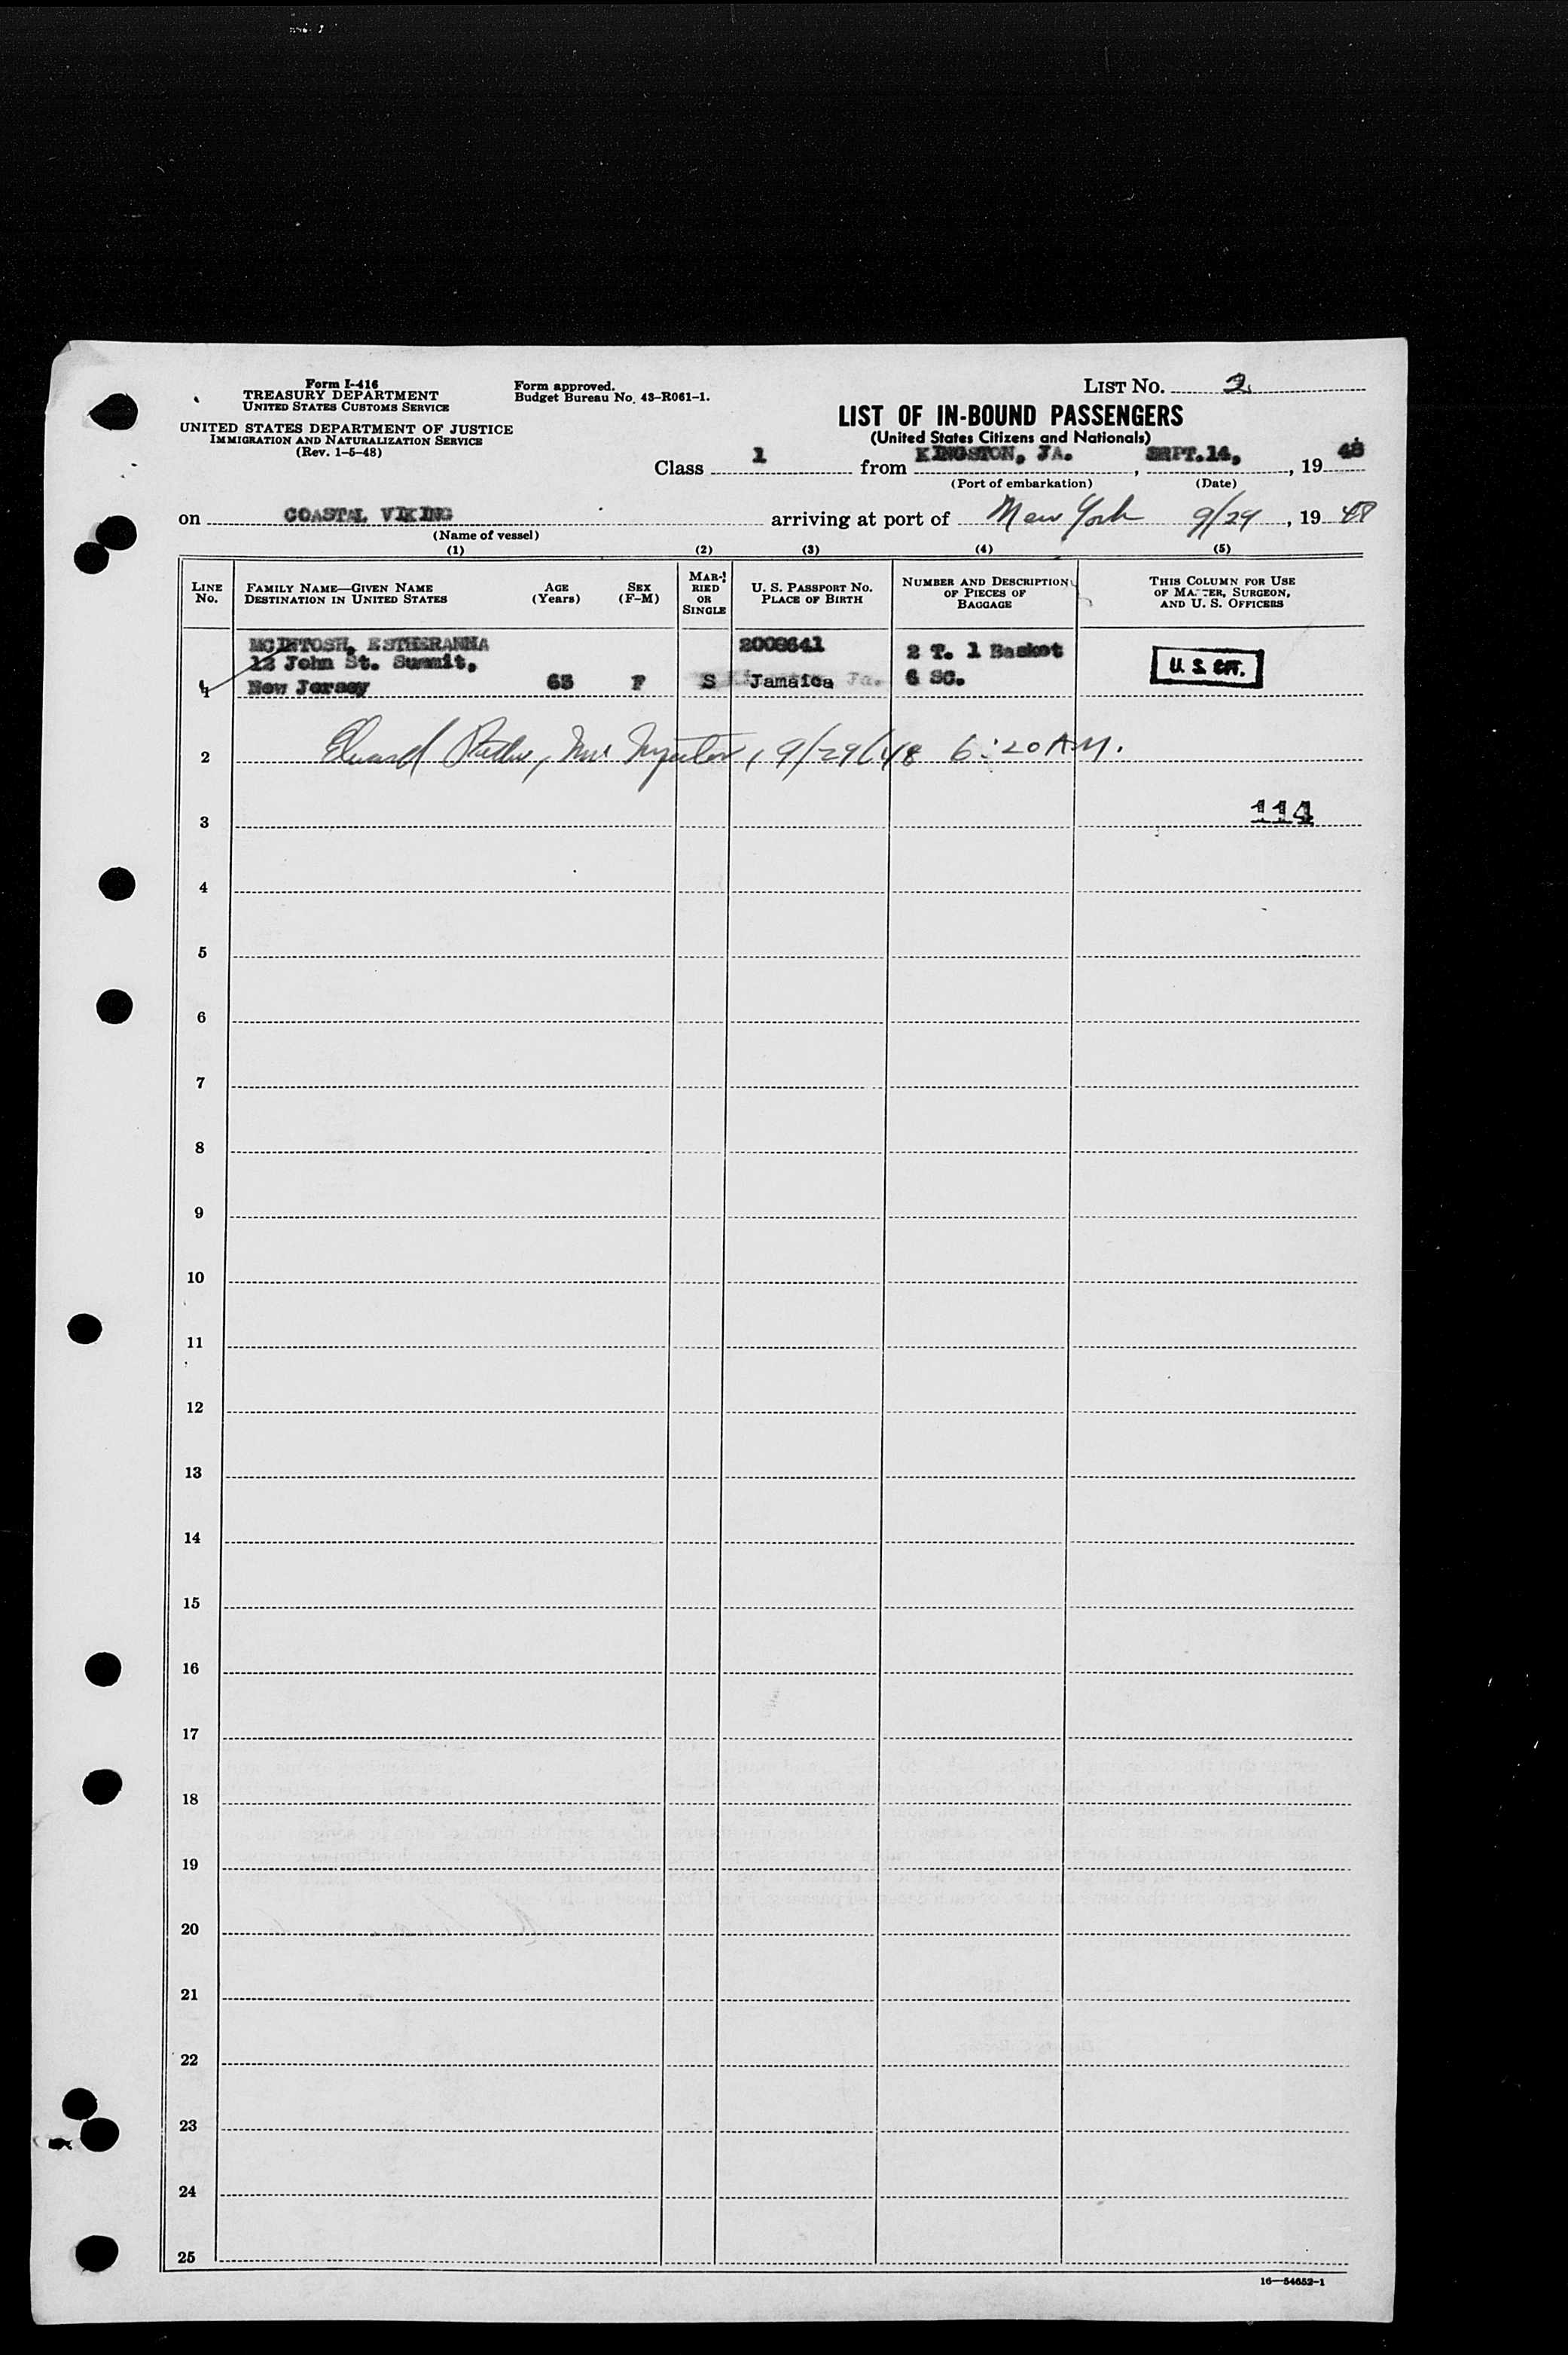 Form I-416
TREASURY DEPARTMENT
UNITED STATES CUSTOMS SERVICE
UNITED STATES DEPARTMENT OF JUSTICE
IMMIGRATION AND NATURALIZATION SERVICE
(Rev. 1-5-48)
Form approved.
Budget Bureau No. 43-R061-1.
LIST NO. 2
LIST OF IN-BOUND PASSENGERS
(United States Citizens and Nationals)
Class 1 from KINGSTON, JA. , SEPT.14, , 19 48
(Port of embarkation) (Date)
on COASTAL VIKING arriving at port of New York 9/29 , 19 48
(Name of vessel)
(1) (2) (3) (4) (5)
LINE No. FAMILY NAME—GIVEN NAME DESTINATION IN UNITED STATES AGE (Years) SEX (F-M) MARRIED OR SINGLE U. S. PASSPORT NO. PLACE OF BIRTH NUMBER AND DESCRIPTION OF PIECES OF BAGGAGE THIS COLUMN FOR USE OF MASTER, SURGEON, AND U. S. OFFICERS
MCINTOSH, ESTHERANNA 2008641
12 John St. Summit, 2 T. 1 Basket
1 New Jersey 63 F S Jamaica Ja. 6 SC. U. S. CIT.
2 Edward , Inspector, 9/29/48 6:20 A.M.
3 114
4
5
6
7
8
9
10
11
12
13
14
15
16
17
18
19
20
21
22
23
24
25
16—54652-1